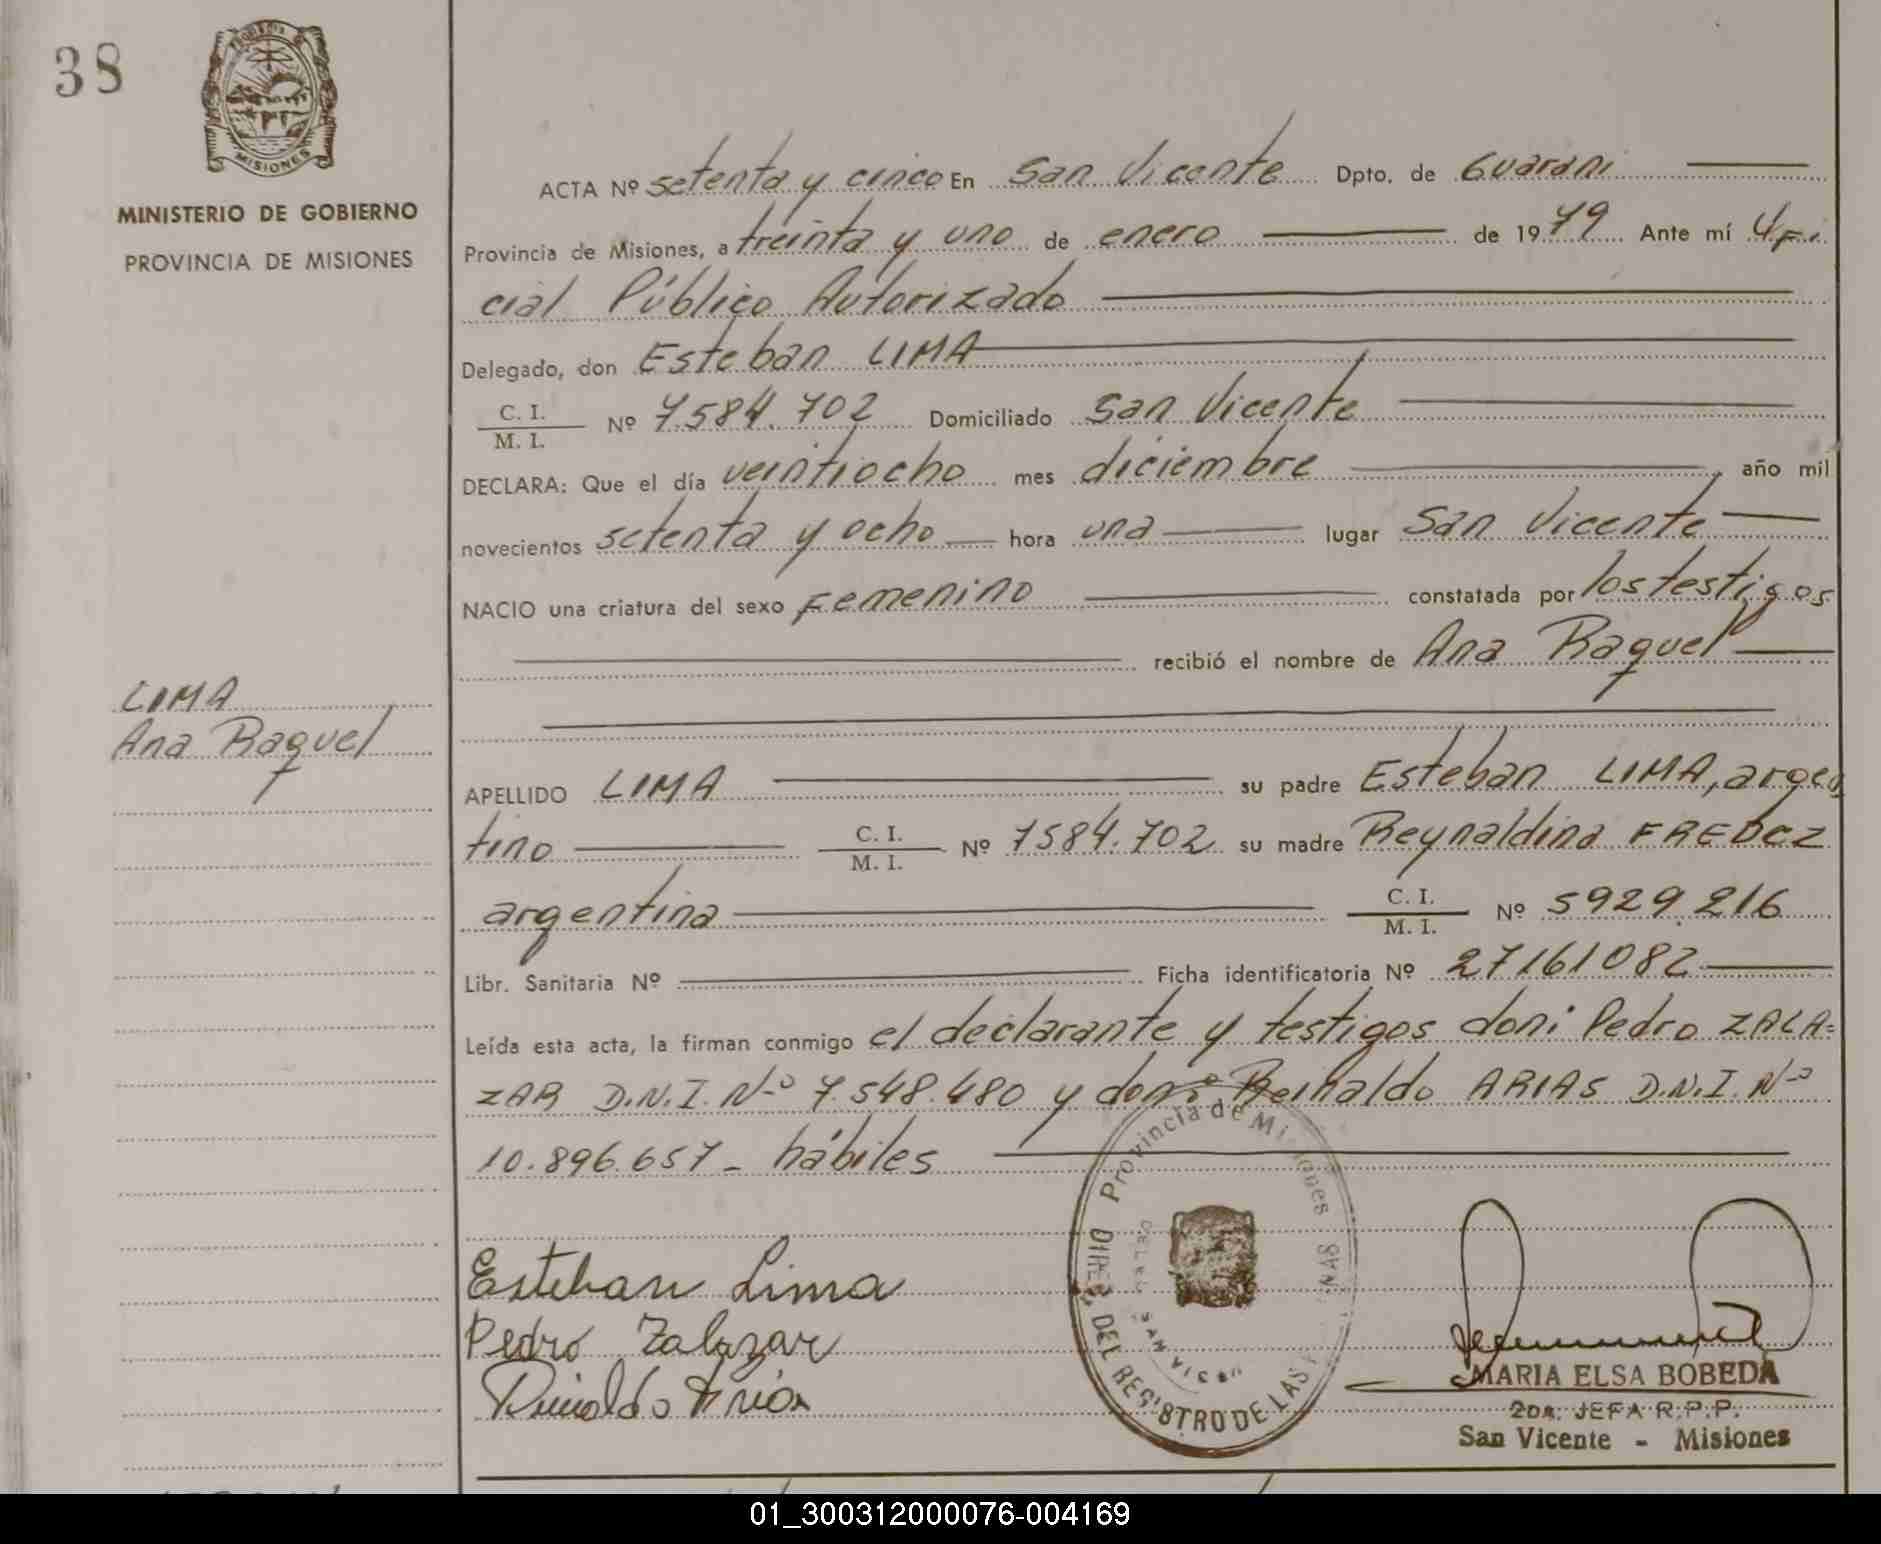 38
MISIONES
MINISTERIO DE GOBIERNO
PROVINCIA DE MISIONES
ACTA Nº setenta y cinco En San Vicente Dpto. de Guarani
Provincia de Misiones, a treinta y uno de enero de 1979 Ante mí Ofi
cial Público Autorizado
Delegado, don Esteban LIMA
C. I.
M. I.
Nº 7584.702 Domiciliado San Vicente
DECLARA: Que el día veintiocho mes diciembre, año mil
novecientos setenta y ocho hora una lugar San Vicente
NACIO una criatura del sexo Femenino constatada por los testigos
recibió el nombre de Ana Raquel
LIMA
Ana Raquel
APELLIDO LIMA su padre Esteban LIMA, argen
tino C. I. M. I. Nº 7584.702 su madre Reynaldina
argentina C. I. M. I. Nº 5929.216
Libr. Sanitaria Nº Ficha identificatoria Nº 27161082
Leída esta acta, la firman conmigo el declarante y testigos don: Pedro ZALA=
ZAR D.N.I. Nº 7.548.480 y don: Reinaldo ARIAS D.N.I. Nº
10.896.657 - hábiles
Provincia de Misiones
DEL REGISTRO DE LAS
SAN VICEN
Esteban Lima
Pedro Zalazar
MARIA ELSA BOBEDA
2DA. JEFA R.P.P.
San Vicente - Misiones
01_300312000076-004169